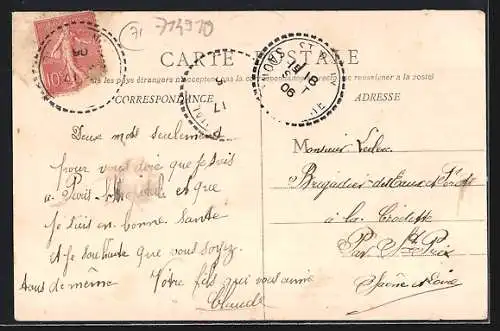 71 714910
CARTE POSTALE
les pays étrangers n'acceptent pas la correspondance
se renseigner à la poste)
CORRESPONDANCE
ADRESSE
10
17
8
06
Deux mots seulement
pour vous dire que je suis
à et que
je suis en bonne Santé
et je souhaite que vous soyez
tous de même Votre fils qui vous aime
Claude
Monsieur Leclerc
Brigadier des Eaux et Forêts
à la
Par St Prix
Saône et Loire